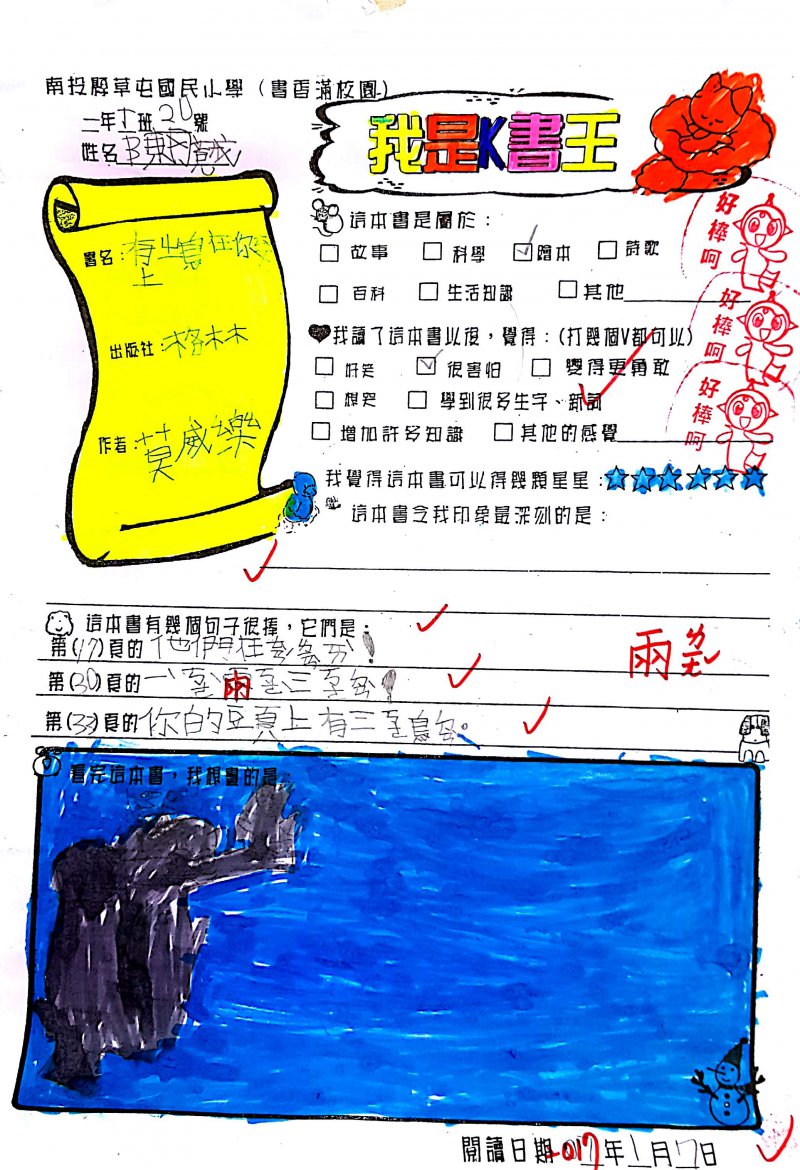 南投縣草屯國民小學（書香滿校園）
二年 班 20 號
姓名 陳
我是K書王
好棒呵
好棒呵
好棒呵
書名：有 在你
上
出版社：格林
作者：莫威樂
這本書是屬於：
□故事 □科學 ☑繪本 □詩歌
□百科 □生活知識 □其他
我讀了這本書以後，覺得：(打幾個V都可以)
□好笑 ☑很害怕 □變得更勇敢
□想哭 □學到很多生字、新詞
□增加許多知識 □其他的感覺
我覺得這本書可以得幾顆星星：☆☆☆☆☆☆
這本書令我印象最深刻的是：
這本書有幾個句子很棒，它們是：
第(17)頁的 他們在
兩ㄌㄧㄤˇ
第(30)頁的 一 兩 三
第(33)頁的 你的 上有三
看完這本書，我想畫的是：
閱讀日期 2017年1月7日